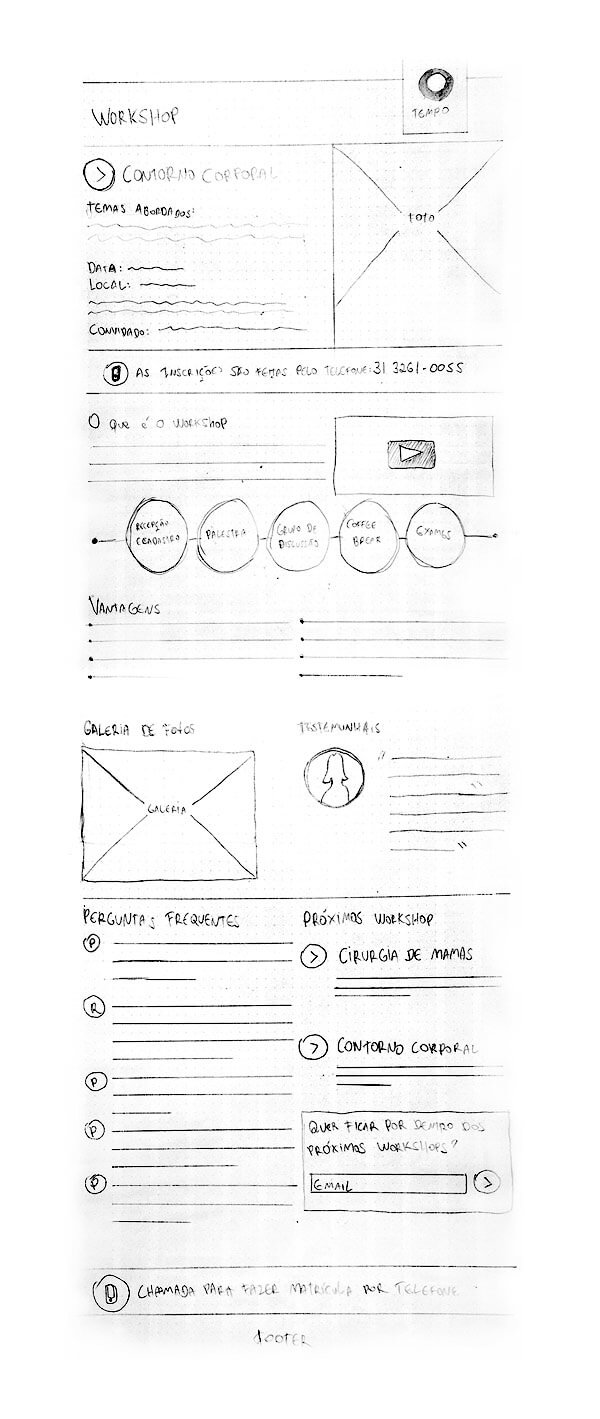 TEMPO
WORKSHOP
CONTORNO CORPORAL
TEMAS ABORDADOS:
foto
DATA:
LOCAL:
CONVIDADO:
AS INSCRIÇÕES SÃO FEITAS PELO TELEFONE: 31 3261-0055
O que é o WORKSHOP
RECEPÇÃO
PALESTRA
GRUPO DE
DISCUSSÃO
COFFEE
BREAK
EXAMES
VANTAGENS
GALERIA DE FOTOS
TESTEMUNHAIS
GALERIA
PERGUNTAS FREQUENTES
P
R
P
P
P
PRÓXIMOS WORKSHOP
CIRURGIA DE MAMAS
CONTORNO CORPORAL
QUER FICAR POR DENTRO DOS
PRÓXIMOS WORKSHOPS?
EMAIL
CHAMADA PARA FAZER MATRÍCULA POR TELEFONE
FOOTER